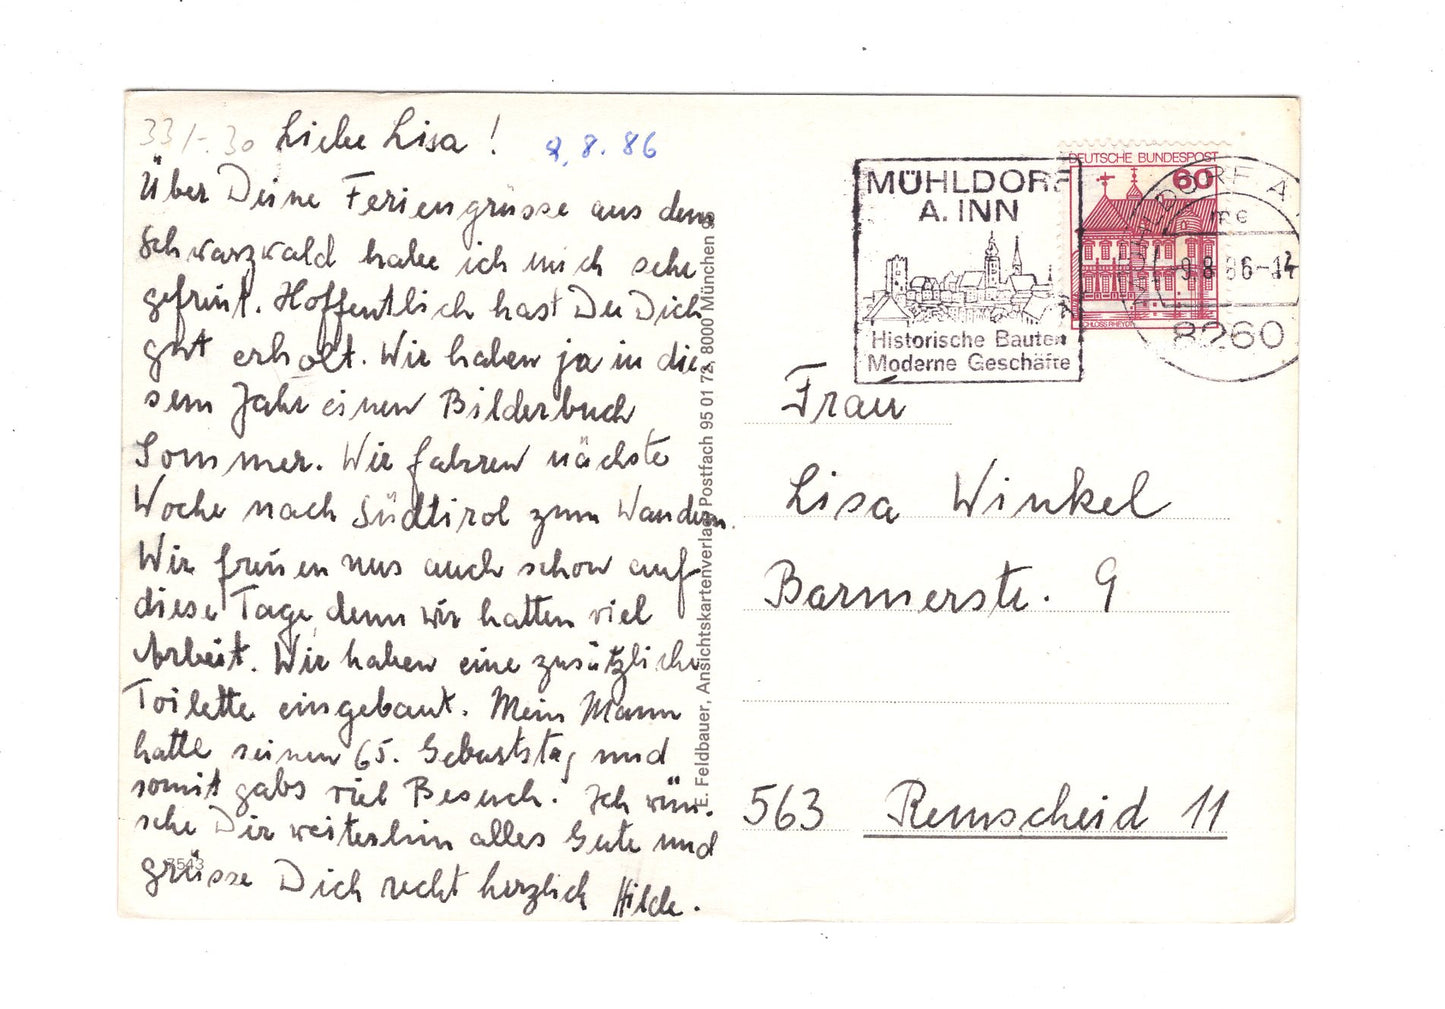 33/-.30
Liebe Lisa! 9.8.86
Über Deine Feriengrüsse aus dem
Schwarzwald habe ich mich sehr
gefreut. Hoffentlich hast Du Dich
gut erholt. Wir haben ja in die-
sem Jahr einen Bilderbuch
Sommer. Wir fahren nächste
Woche nach Südtirol zum Wandern.
Wir freuen uns auch schon auf
diese Tage, denn wir hatten viel
Arbeit. Wir haben eine zusätzliche
Toilette eingebaut. Mein Mann
hatte seinen 65. Geburtstag und
somit gabs viel Besuch. Ich wün-
sche Dir weiterhin alles Gute und
grüsse Dich recht herzlich Hilde.
7543
E. Feldbauer, Ansichtskartenverlag Postfach 95 01 72, 8000 München 95
MÜHLDORF
A. INN
Historische Bauten
Moderne Geschäfte
DEUTSCHE BUNDESPOST
60
SCHLOSS RHEYDT
MÜHLDORF A
mc
-9.8.86-14
8260
Frau
Lisa Winkel
Barmerstr. 9
563 Remscheid 11